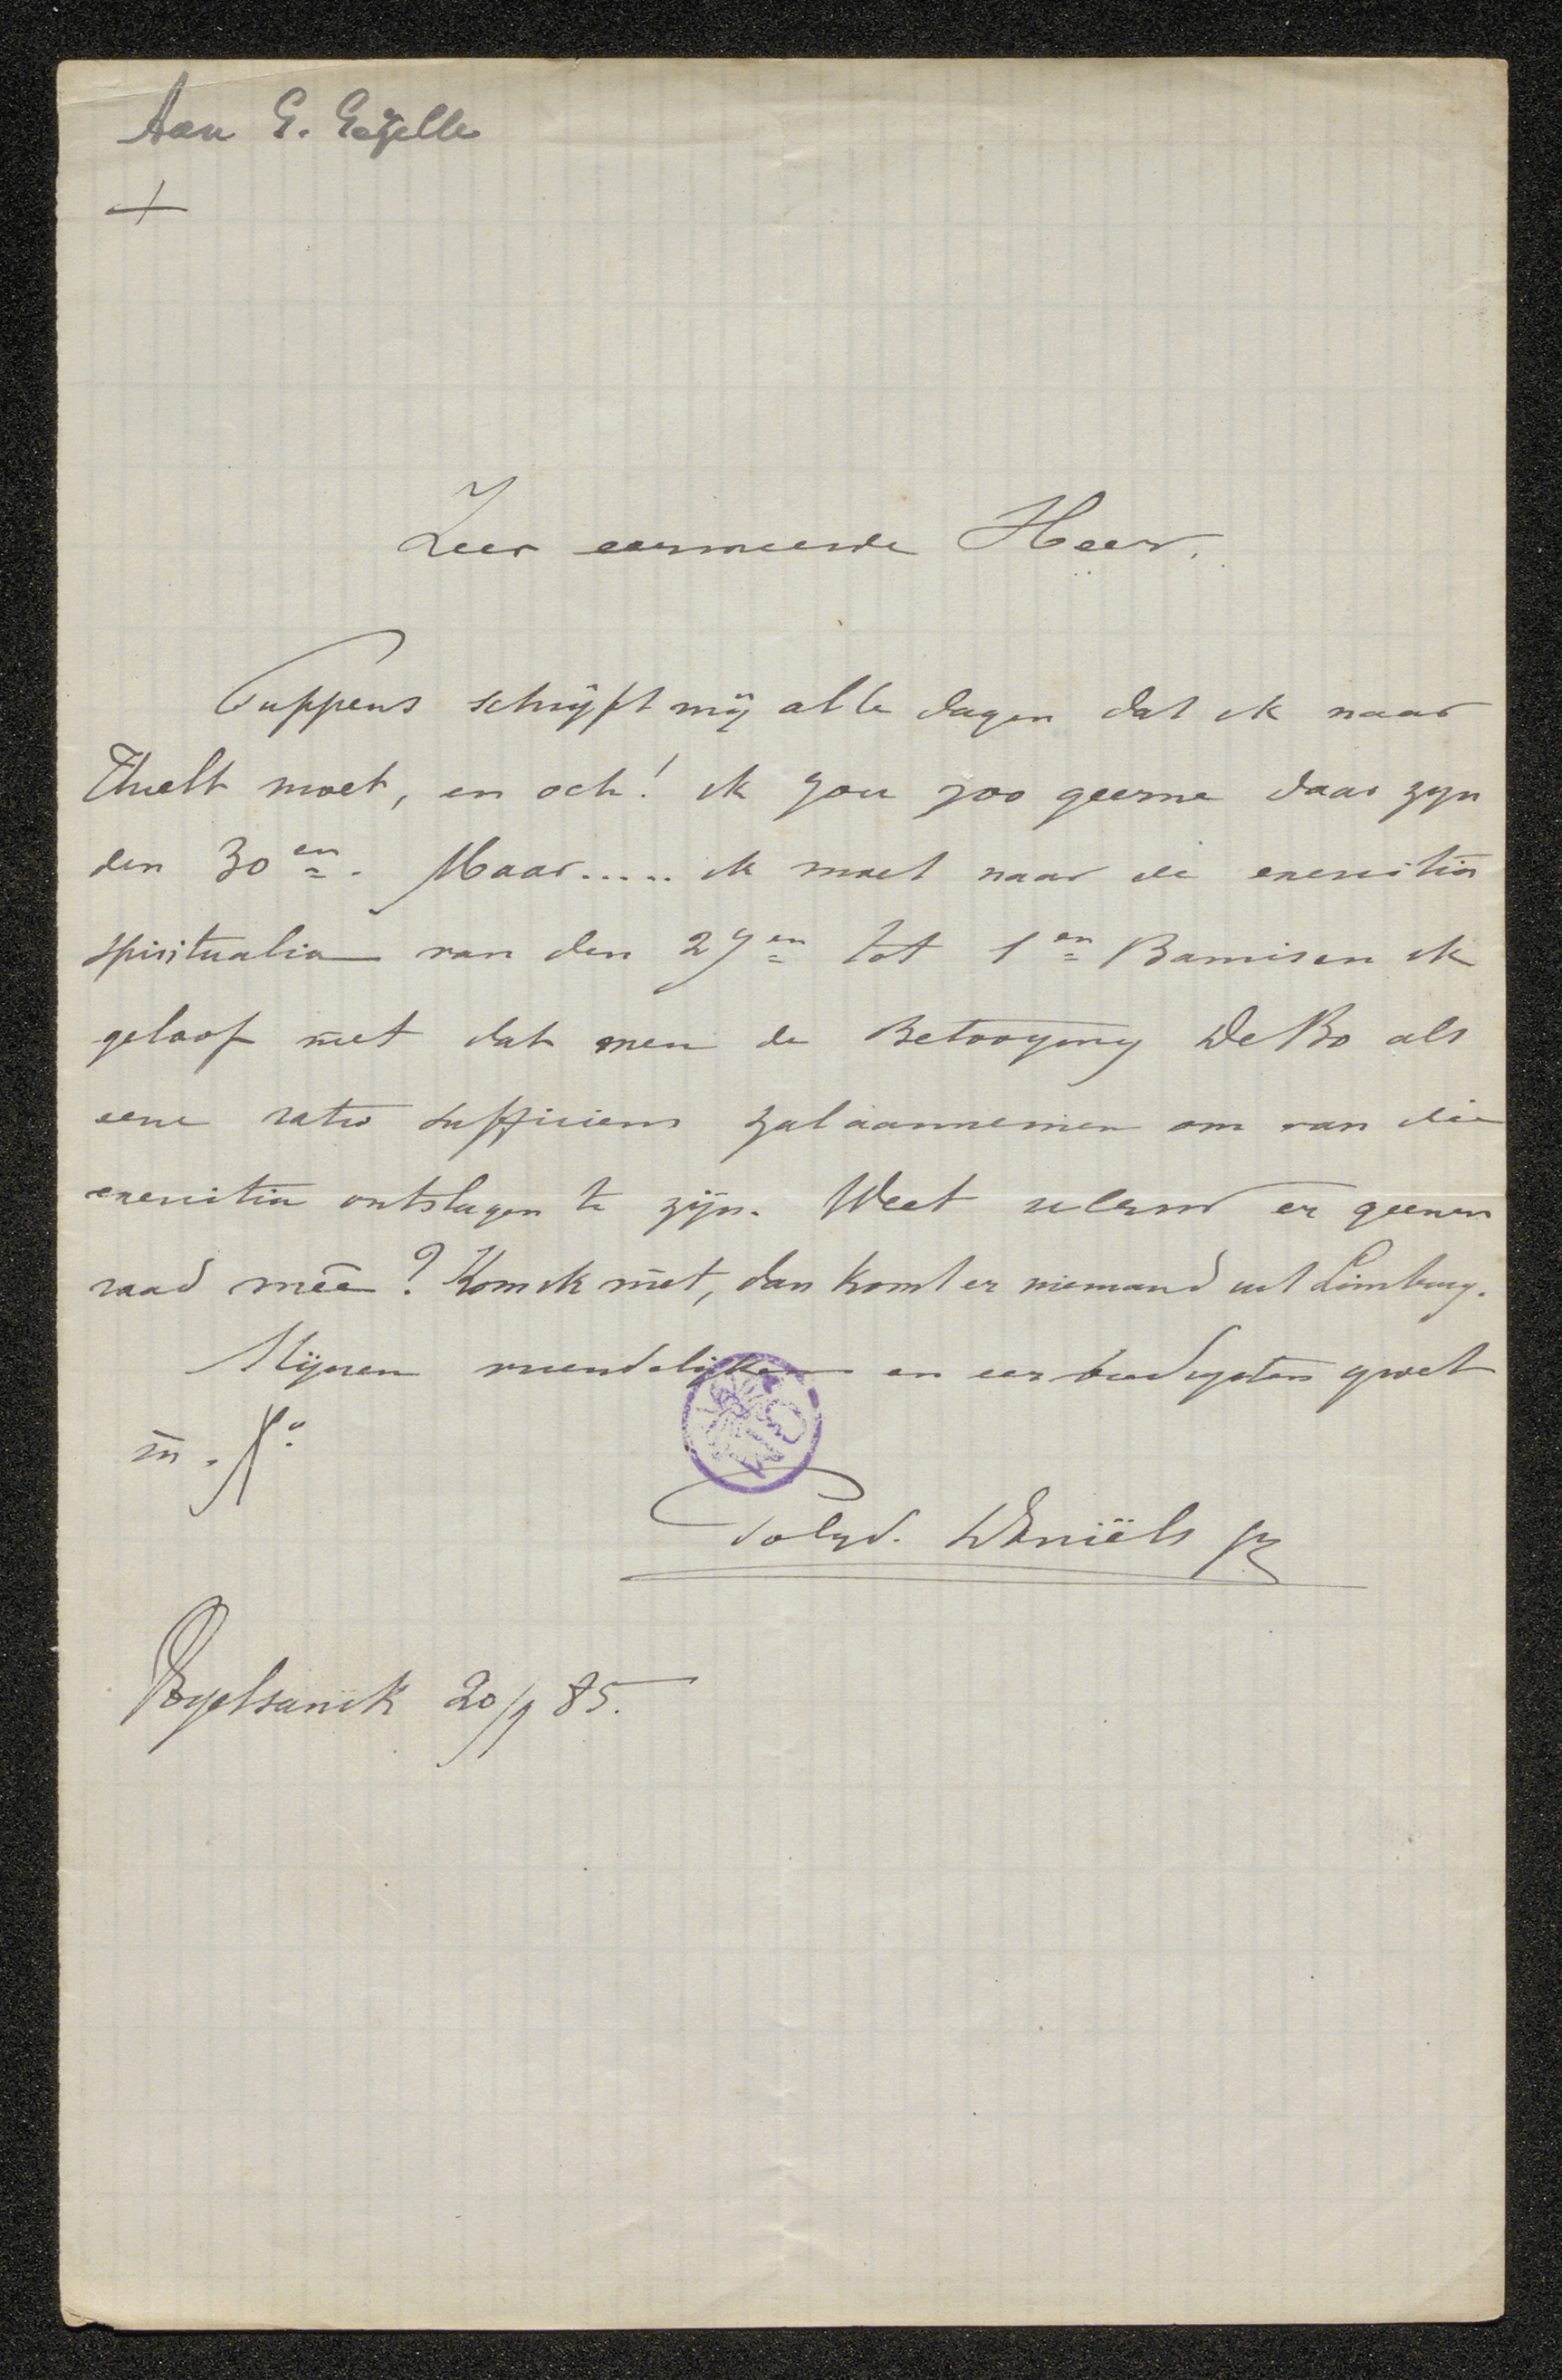 Aan G. Gezelle
+
Zeer eerweerde Heer.
Cuppens schrijft mij alle dagen dat ik naar
Thielt moet, en och! ik zou zoo geerne daar zyn
den 30en. Maar..... ik moet naar de exercitia
spiritualia van den 27en tot 1en Bamis en ik
geloof niet dat men de Betooging De Bo als
eene ratio sufficiens zal aannemen om van die
exercitia ontslagen te zijn. Weet uEerw er geenen
raad meê? Kom ik niet, dan komt er niemand uit Limburg.
Mijnen vriendelijken en eerbiedigsten groet
in Xo.
Polyd. Daniëls pr
Vogelsanck 20/9 85.